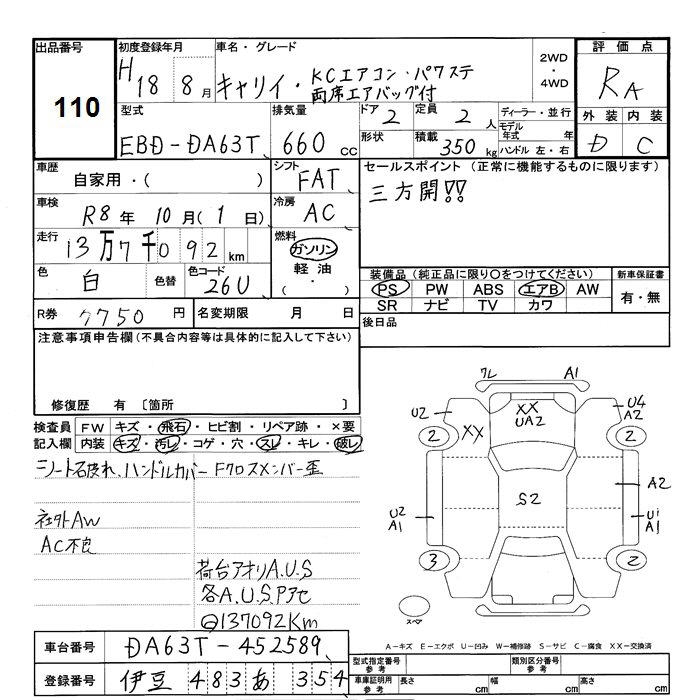 出品番号
110
初度登録年月
H18年8月
車名・グレード
キャリイ・KCエアコン・パワステ
両席エアバッグ付
2WD
・
4WD
評価点
RA
外装 内装
D C
型式
EBD-DA63T
排気量
660 cc
ドア
2
定員
2 人
形状
積載
350 kg
ディーラー・並行
モデル年式 年
ハンドル 左・右
車歴
自家用・( )
シフト
FAT
セールスポイント (正常に機能するものに限ります)
三方開!!
車検
R8年 10月(1日)
冷房
AC
走行
13万7千092 km
燃料
ガソリン
軽油
( ・ )
色
白
色替
色コード
26U
装備品 (純正品に限り〇をつけてください)
PS PW ABS エアB AW
SR ナビ TV カワ
新車保証書
有・無
R券 7750 円
名変期限 月 日
後日品
注意事項申告欄 (不具合内容等は具体的に記入して下さい)
修復歴 有 〔箇所 〕
検査員
記入欄
FW キズ・飛石・ヒビ割・リペア跡・×要
内装 キズ・汚レ・コゲ・穴・スレ・キレ・破レ
シート破れ、ハンドルカバー Fクロスメンバー歪
社外AW
AC不良
荷台アオリA.U.S
各A.U.S.Pアセ
◎137092Km
ワレ A1
U2
XX
XX
UA2
U4
A2
2 2
S2
A2
U2
A1
U1
A1
3 2
スペア
A-キズ E-エクボ U-凹み W-補修跡 S-サビ C-腐食 XX-交換済
車台番号
DA63T-452589
登録番号
伊豆 483 あ 354
型式指定番号
参考
類別区分番号
参考
車庫証明用
参考
長さ cm
幅 cm
高さ cm